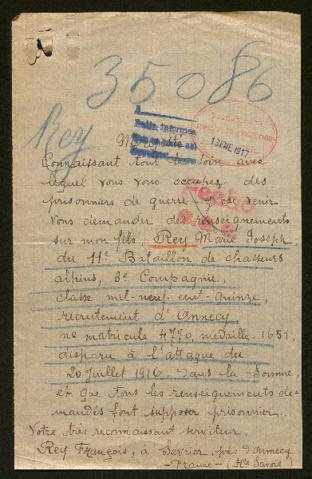 35086
Rey
13 ENE 1917
Connaissant tout le soin avec
lequel vous vous occupez des
prisonniers de guerre j'ose venir
Vous demander des renseignements
sur mon fils, Rey Marie Joseph
du 11e Bataillon de chasseurs
alpins, 3e Compagnie,
classe mil-neuf-cent-quinze,
recrutement d'Annecy
ne matricule 4770, médaille 1651,
disparu à l'attaque du
20 Juillet 1916 dans la Somme
et que tous les renseignements de-
mandés font supposer prisonnier.
Votre très reconnaissant serviteur.
Rey François, à Sevrier, près d'Annecy
Hte Savoie